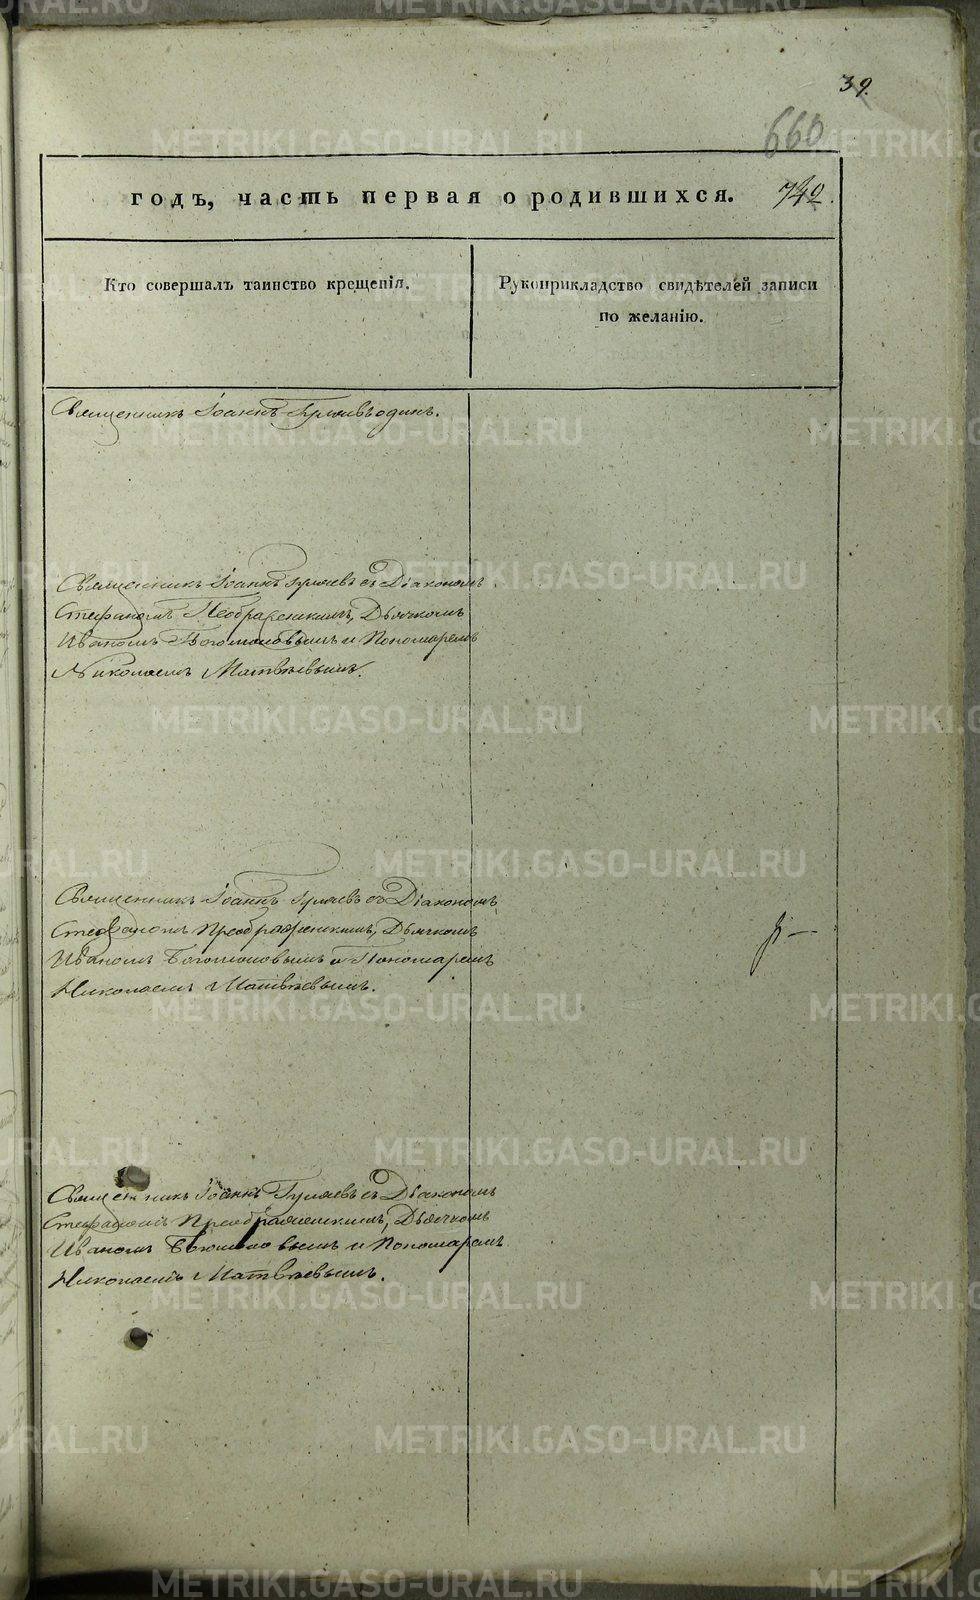 39.
660
годъ, часть первая о родившихся. 742.
Кто совершалъ таинство крещенія.
Рукоприкладство свидѣтелей записи
по желанію.
Священникъ Іоаннъ Гуляевъ одинъ.
Священникъ Іоаннъ Гуляевъ съ Діакономъ
Стефаномъ Преображенскимъ, Дьячкомъ
Иваномъ Богомоловымъ и Пономаремъ
Николаемъ Матвѣевымъ.
Священникъ Іоаннъ Гуляевъ съ Діакономъ
Стефаномъ Преображенскимъ, Дьячкомъ
Иваномъ Богомоловымъ и Пономаремъ
Николаемъ Матвѣевымъ.
Священникъ Іоаннъ Гуляевъ съ Діакономъ
Стефаномъ Преображенскимъ, Дьячкомъ
Иваномъ Богомоловымъ и Пономаремъ
Николаемъ Матвѣевымъ.
METRIKI.GASO-URAL.RU